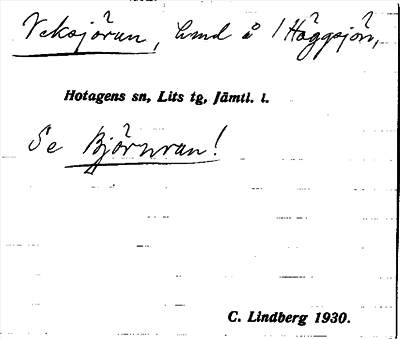 Veksjöran, lmd å 1 Häggsjön,
Hotagens sn, Lits tg, Jämtl. l.
Se Björnran!
C. Lindberg 1930.